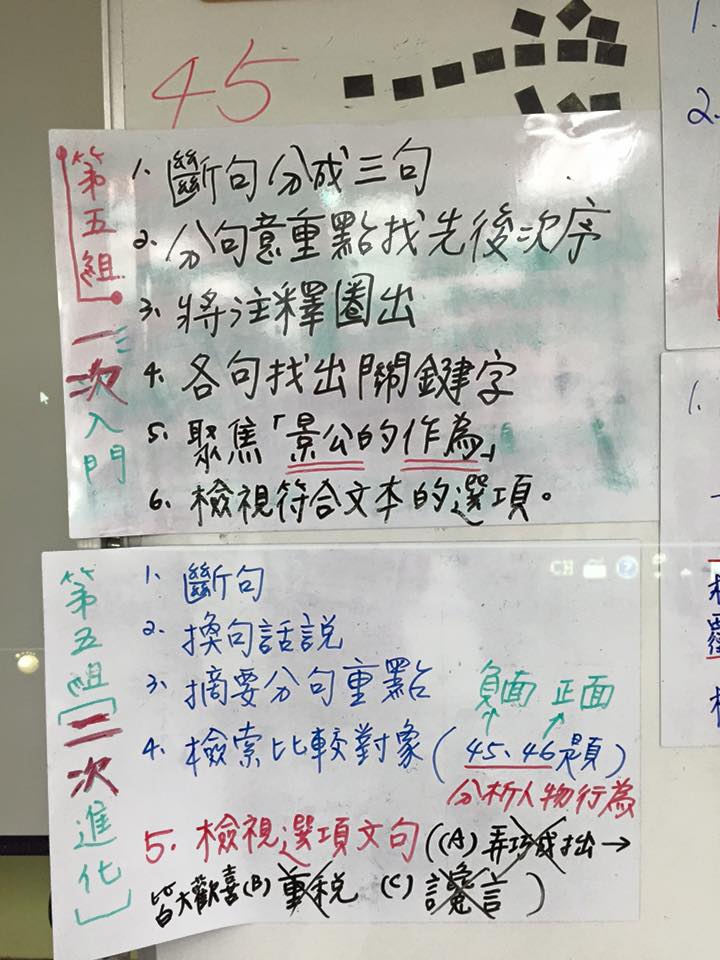 45
第五組
一次入門
1. 斷句分成三句
2. 分句意重點找先後次序
3. 將注釋圈出
4. 各句找出關鍵字
5. 聚焦「景公的作為」
6. 檢視符合文本的選項。
CH
第五組「二次進化」
1. 斷句
2. 換句話說
3. 摘要分句重點
負面 正面
4. 檢索比較對象(45、46題)
分析人物行為
5. 檢視選項文句((A)弄巧成拙→
皆大歡喜(B)重稅 (C)讒言)
1.
2.
1.